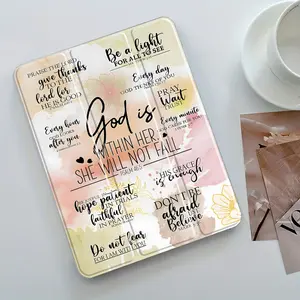 PRAISE THE LORD
give thanks
TO THE
lord for
HE IS GOOD
Be a light
FOR ALL TO SEE
Every day
GOD THINKS OF YOU
PRAY
Wait
TRUST
Every hour
GOD LOOKS
after you
Every minute
GOD CARES FOR YOU
God is
WITHIN HER
SHE WILL NOT FALL
HIS GRACE
is enough
hope patient
IN TRIALS
faithful
IN PRAYER
DON'T BE
afraid
Believe
Do not fear
FOR I AM WITH YOU